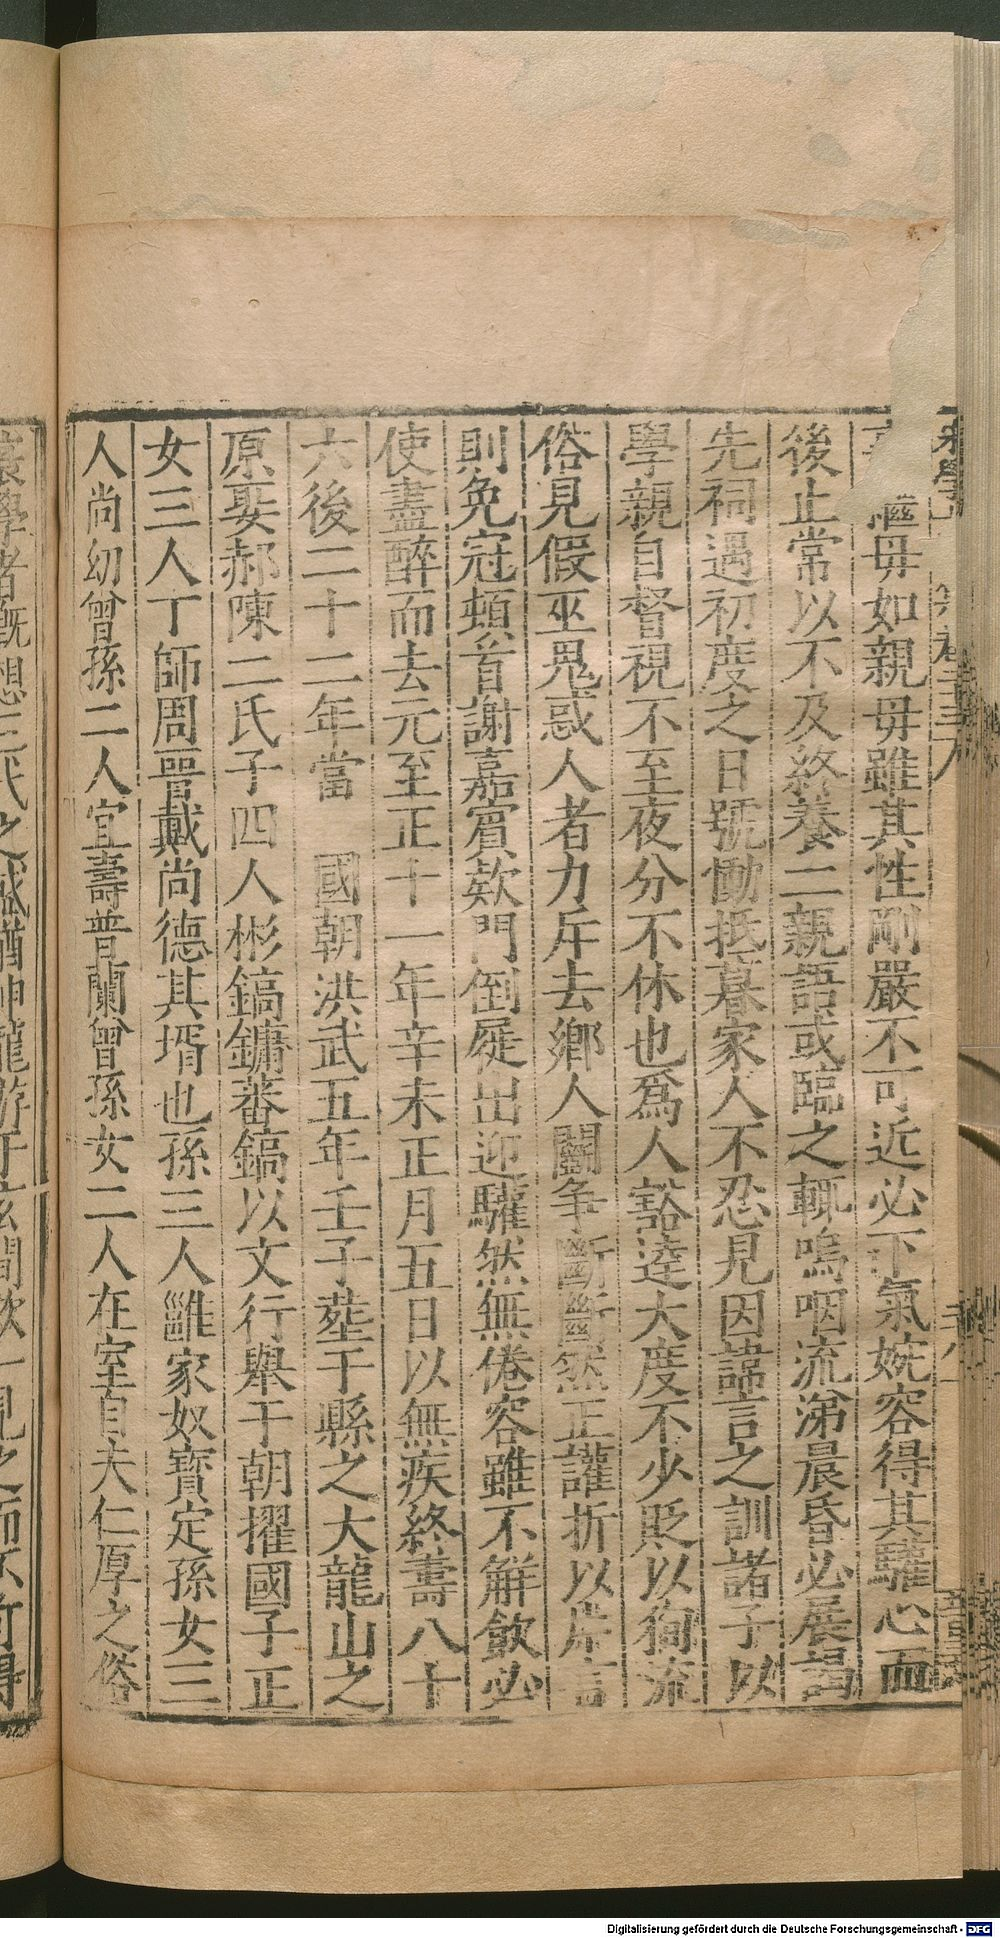 繼母如親母雖其性剛嚴不可近必下氣婉容得其驩心而
後止常以不及終養二親語或臨之輒嗚咽流涕晨昏必展謁
先祠遇初度之日號慟抵暮家人不忍見因諱言之訓諸子以
學親自督視不至夜分不休也爲人豁達大度不少貶以徇流
俗見假巫鬼惑人者力斥去鄉人鬭爭斷斷然正讙折以片言
則免冠頓首謝嘉賓欵門倒屣出迎驩然無倦容雖不觧飲必
使盡醉而去元至正十一年辛未正月五日以無疾終壽八十
六後二十二年當 國朝洪武五年壬子塟于縣之大龍山之
原娶郝陳二氏子四人彬鎬鏞蕃鎬以文行舉于朝擢國子正
女三人丁師周晉戴尚德其壻也孫三人雝家奴寶定孫女三
人尚幼曾孫二人宜壽普蘭曾孫女二人在室自夫仁厚之俗
Digitalisierung gefördert durch die Deutsche Forschungsgemeinschaft - DFG